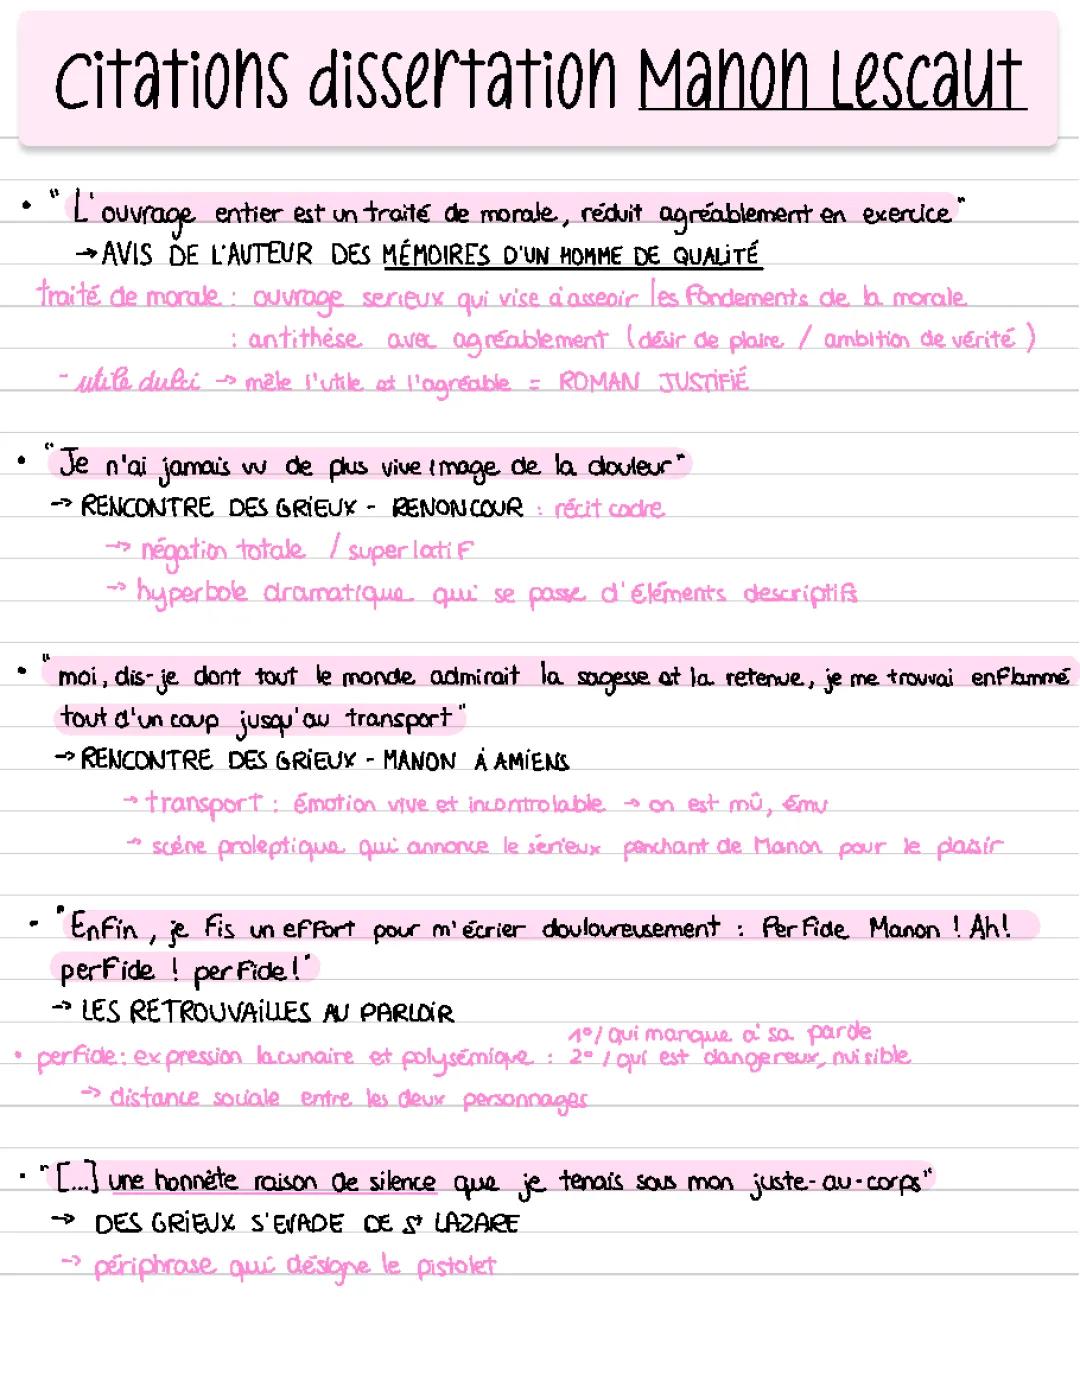 Citations dissertation Manon Lescaut
• "L'ouvrage entier est un traité de morale, réduit agréablement en exercice"
→ AVIS DE L'AUTEUR DES MÉMOIRES D'UN HOMME DE QUALITÉ
traité de morale : ouvrage serieux qui vise à asseoir les fondements de la morale
: antithèse avec agréablement (désir de plaire / ambition de vérité)
- utile dulci → mêle l'utile et l'agréable = ROMAN JUSTIFIÉ
• "Je n'ai jamais vu de plus vive image de la douleur"
→ RENCONTRE DES GRIEUX - RENONCOUR : récit cadre
→ négation totale / superlatif
→ hyperbole dramatique qui se passe d'éléments descriptifs
• "moi, dis-je dont tout le monde admirait la sagesse et la retenue, je me trouvai enflammé
tout d'un coup jusqu'au transport"
→ RENCONTRE DES GRIEUX - MANON À AMIENS
→ transport : émotion vive et incontrolable → on est mû, ému
→ scène proleptique qui annonce le sérieux penchant de Manon pour le plaisir
• "Enfin, je fis un effort pour m'écrier douloureusement : Perfide Manon ! Ah!
perfide ! perfide!"
→ LES RETROUVAILLES AU PARLOIR
1°/ qui manque à sa parole
• perfide: expression lacunaire et polysémique : 2° / qui est dangereux, nuisible
→ distance sociale entre les deux personnages
• "[...] une honnête raison de silence que je tenais sous mon juste-au-corps"
→ DES GRIEUX S'EVADE DE St LAZARE
→ périphrase qui désigne le pistolet